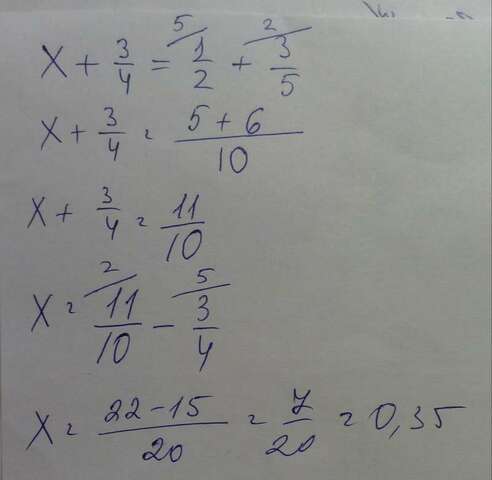 x + 3/4 = 5/ 1/2 + 2/ 3/5
x + 3/4 = (5 + 6)/10
x + 3/4 = 11/10
x = 2/ 11/10 - 5/ 3/4
x = (22 - 15)/20 = 7/20 = 0,35